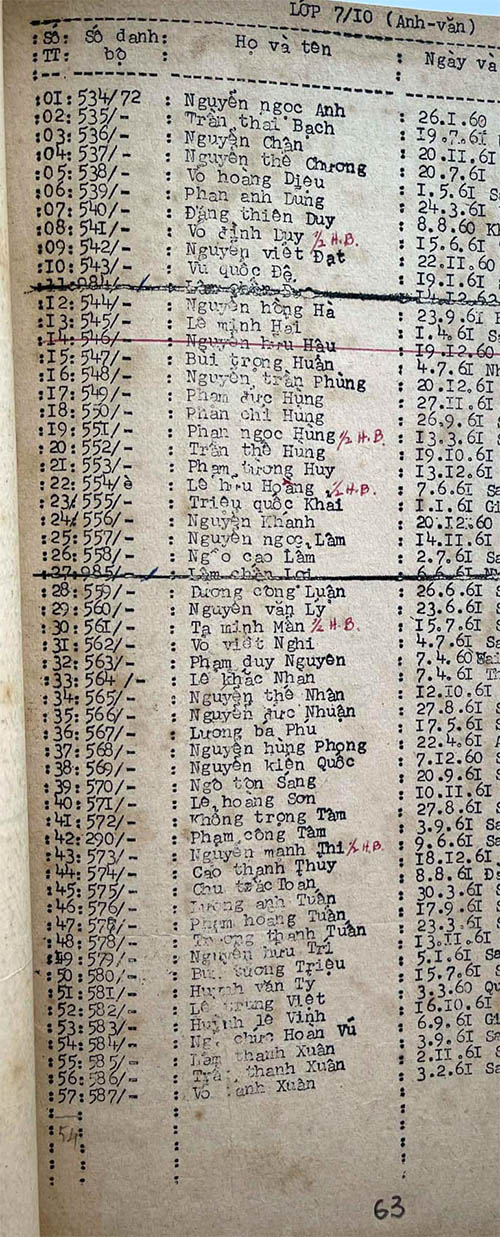 LỚP 7/10 (Anh-văn)
Số TT: Số danh bộ : Họ và tên : Ngày và
:01: 534/72 : Nguyễn ngọc Anh : 26.1.60
:02: 535/- : Trần thái Bạch : 19.7.61
:03: 536/- : Nguyễn Chận : 20.11.61
:04: 537/- : Nguyễn thế Chương : 20.7.61
:05: 538/- : Võ hoàng Diệu : 1.5.61 S
:06: 539/- : Phan anh Dũng : 24.3.61
:07: 540/- : Đặng thiên Duy : 8.8.60 Kh
:08: 541/- : Võ đình Duy ½ H.B. : 15.6.61
:09: 542/- : Nguyễn viết Đạt : 22.11.60
:10: 543/- : Vũ quốc Đệ : 19.1.61 S
:11: 984/ : 14.12.62
:12: 544/- : Nguyễn hồng Hà : 23.9.61
:13: 545/- : Lê minh Hải : 1.4.61 Sa
:14: 546/- : Nguyễn hữu Hậu : 19.12.60
:15: 547/- : Bùi trọng Huân : 4.7.61 Nh
:16: 548/- : Nguyễn trần Phùng : 20.12.61
:17: 549/- : Phạm đức Hùng : 27.11.61
:18: 550/- : Phan chí Hùng : 26.9.61 S
:19: 551/- : Phan ngọc Hùng ½ H.B. : 13.3.61
:20: 552/- : Trần thế Hùng : 19.10.61
:21: 553/- : Phạm tương Huy : 13.12.61
:22: 554/è : Lê hữu Hoằng ½ H.B. : 7.6.61 Sa
:23: 555/- : Triệu quốc Khải : 1.1.61 Gi
:24: 556/- : Nguyễn Khánh : 20.12.60
:25: 557/- : Nguyễn ngọc Lâm : 14.11.61
:26: 558/- : Ngô cao Lâm : 2.7.61 Sa
:27: 985/- : Lâm chấn Lợi : 6.6.61
:28: 559/- : Dương công Luận : 26.6.61 S
:29: 560/- : Nguyễn văn Lý : 23.6.61 S
:30: 561/- : Tạ minh Mẫn ½ H.B. : 15.7.61 S
:31: 562/- : Võ viết Nghi : 4.7.61 Sa
:32: 563/- : Phạm duy Nguyên : 7.4.60 Sai
:33: 564 /- : Lê khắc Nhan : 7.4.61 Th
:34: 565/- : Nguyễn thế Nhân : 12.10.61
:35: 566/- : Nguyễn đức Nhuận : 27.8.61 S
:36: 567/- : Lương bá Phu : 17.5.61
:37: 568/- : Nguyễn hùng Phong : 22.4.61 A
:38: 569/- : Nguyễn kiến Quốc : 7.12.60 S
:39: 570/- : Ngô tôn Sang : 20.9.61 S
:40: 571/- : Lê hoàng Sơn : 10.11.61
:41: 572/- : Khổng trọng Tâm : 27.8.61 S
:42: 290/- : Phạm công Tâm : 3.9.61 Sa
:43: 573/- : Nguyễn mạnh Thi ½ H.B. : 9.6.61 Sa
:44: 574/- : Cao thanh Thụy : 18.12.61
:45: 575/- : Chu trắc Toàn : 8.8.61
:46: 576/- : Lương anh Tuấn : 30.3.61
:47: 577/- : Phạm hoàng Tuấn : 17.9.61 S
:48: 578/- : Trương thanh Tuấn : 23.3.61
:49: 579/- : Nguyễn hữu Trí : 13.11.61
:50: 580/- : Bùi tương Triệu : 5.1.61 Sa
:51: 581/- : Huỳnh văn Tý : 15.7.61 S
:52: 582/- : Lê trung Việt : 3.3.60 Qu
:53: 583/- : Huỳnh lê Vinh : 16.10.61
:54: 584/- : chức Hoàn Vũ : 6.9.61 Gi
:55: 585/- : Lâm thanh Xuân : 3.9.61
:56: 586/- : Trần thanh Xuân : 2.11.61 S
:57: 587/- : Võ anh Xuân : 3.2.61 Sa
54
63